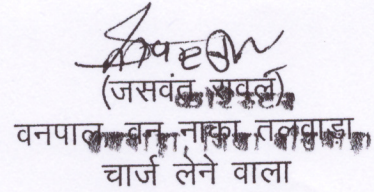 (जसवंत रावल)
वनपाल वन नाका तलवाड़ा
चार्ज लेने वाला